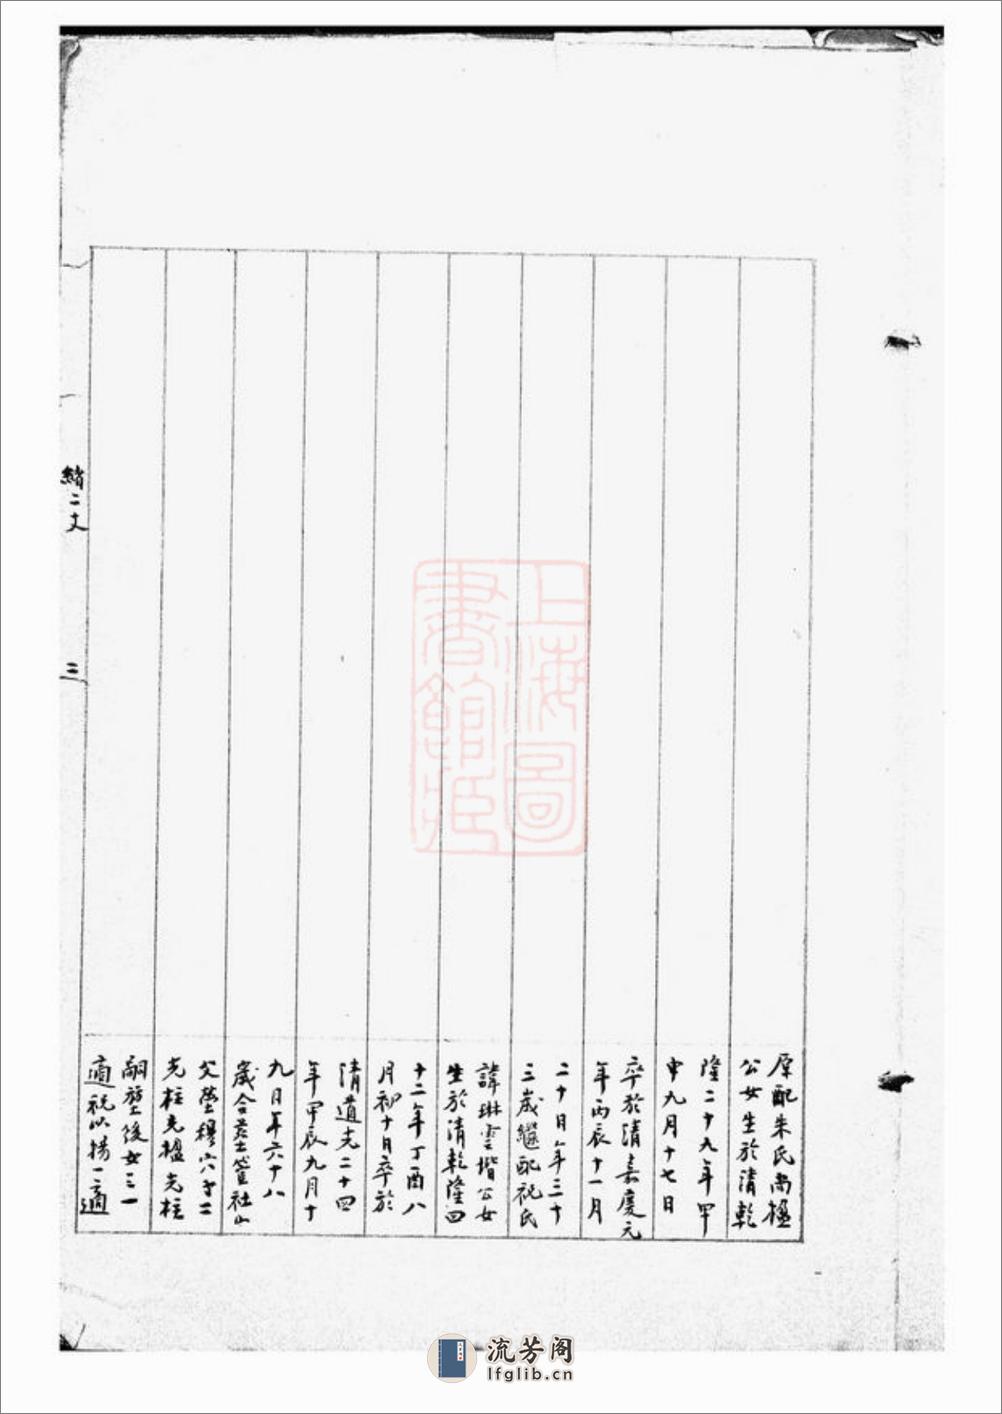 原配朱氏尚楹
公女生於清乾
隆二十九年甲
申九月十七日
卒於清嘉慶元
年丙辰十一月
二十日年三十
三歲繼配祝氏
諱琳雲楷公女
生於清乾隆四
十二年丁酉八
月初十日卒於
清道光二十四
年甲辰九月十
九日年六十八
歲合葬土管社山
父塋穆穴子二
光柱光楹光柱
嗣塋後女三一
適祝以揚一適
緒二支
三
上海圖
書館藏
流芳阁
lfglib.cn